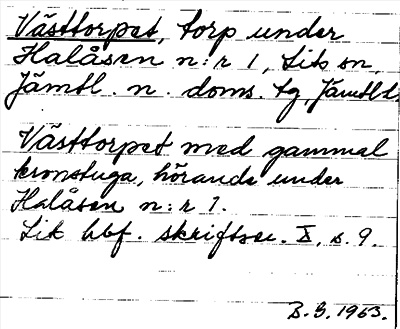 Västtorpet, torp under
Halåsen n:r 1, Lits sn,
Jämtl. n. doms. tg, Jämtl. l.
Västtorpet med gammal
kronstuga, hörande under
Halåsen n:r 1.
Lit hbf. skriftser. X, s. 9.
B.G. 1953.